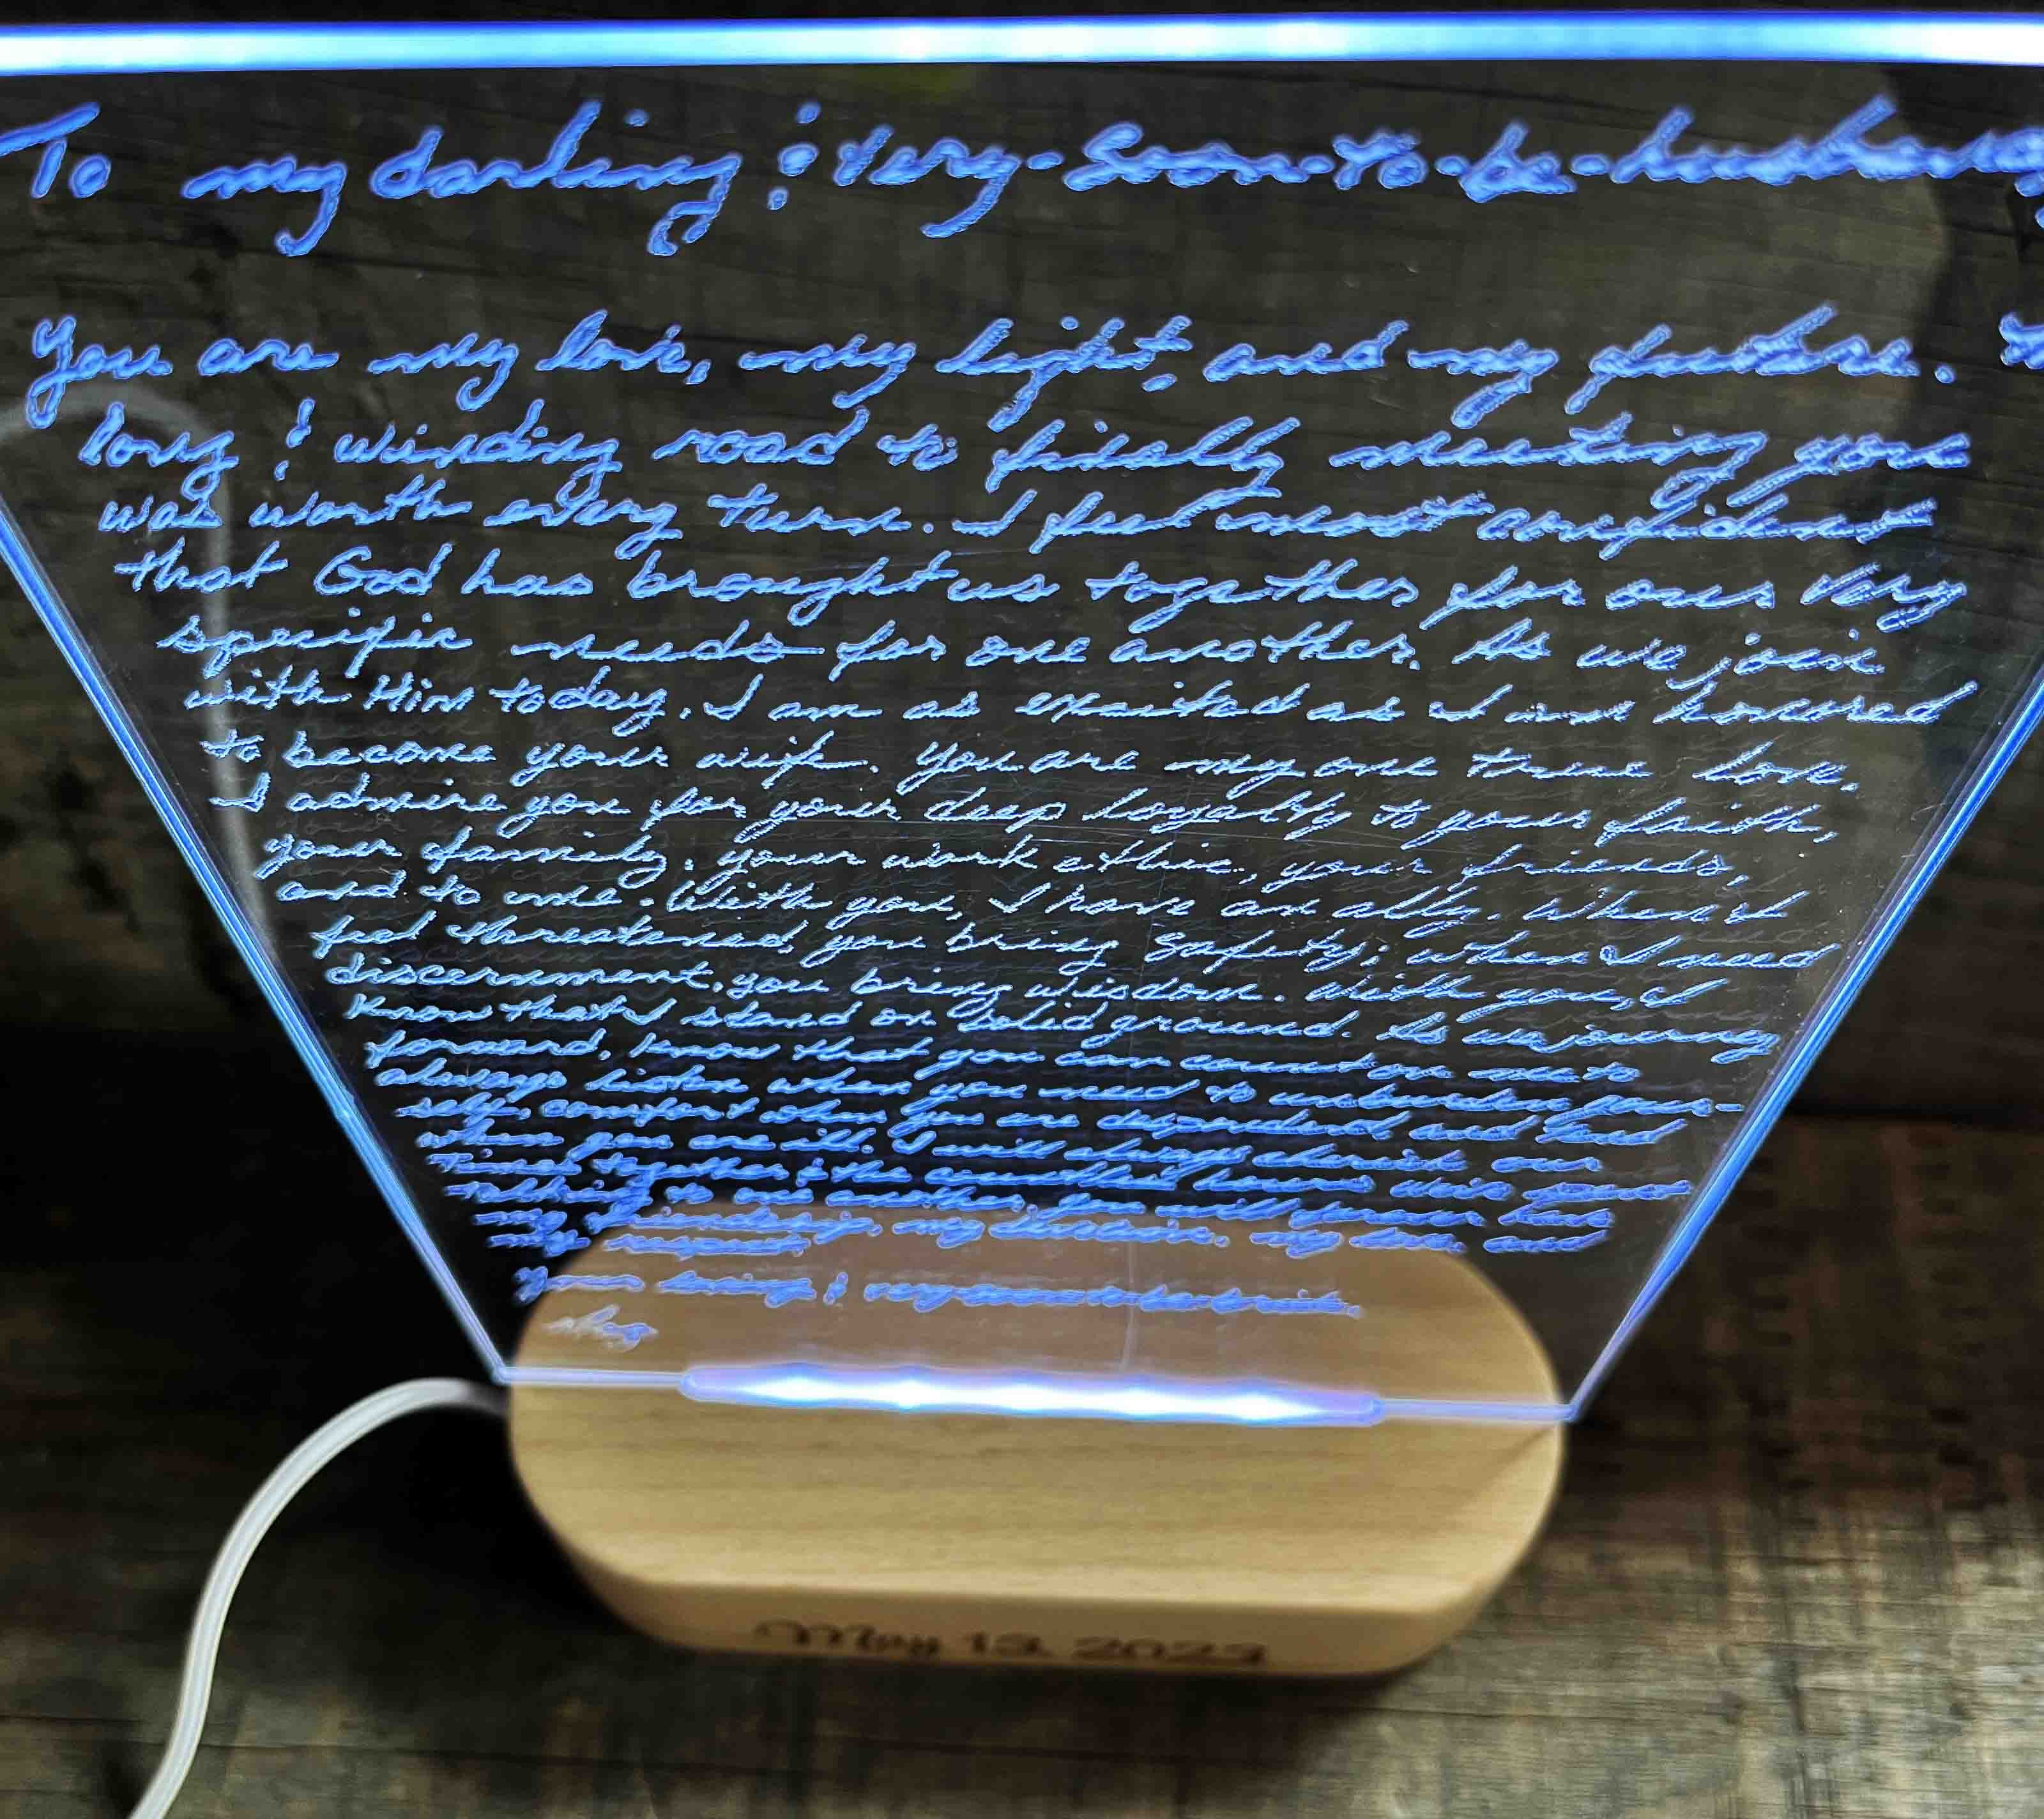 To my darling & very-soon-to-be-husband
You are my love, my light, and my future.
long & winding road to finally meeting you
was worth every turn. I feel most confident
that God has brought us together for our very
specific needs for one another. As we join
with Him today, I am as excited as I am honored
to become your wife. You are my one true love.
I admire you for your deep loyalty to your faith,
your family, your work ethic, your friends,
and to me. With you, I have an ally. When I
feel threatened, you bring safety; when I need
discernment, you bring wisdom. With you, I
know that I stand on solid ground. As we journey
forward, know that you can count on me to
always listen when you need to unburden your-
self, comfort when you are despondent, and
when you are ill. I will always cherish our
times together & the
talking to one another. You will forever have
my friendship, my desire, my love and
my respect.
Your loving & very soon to be bride,
May 13, 2023